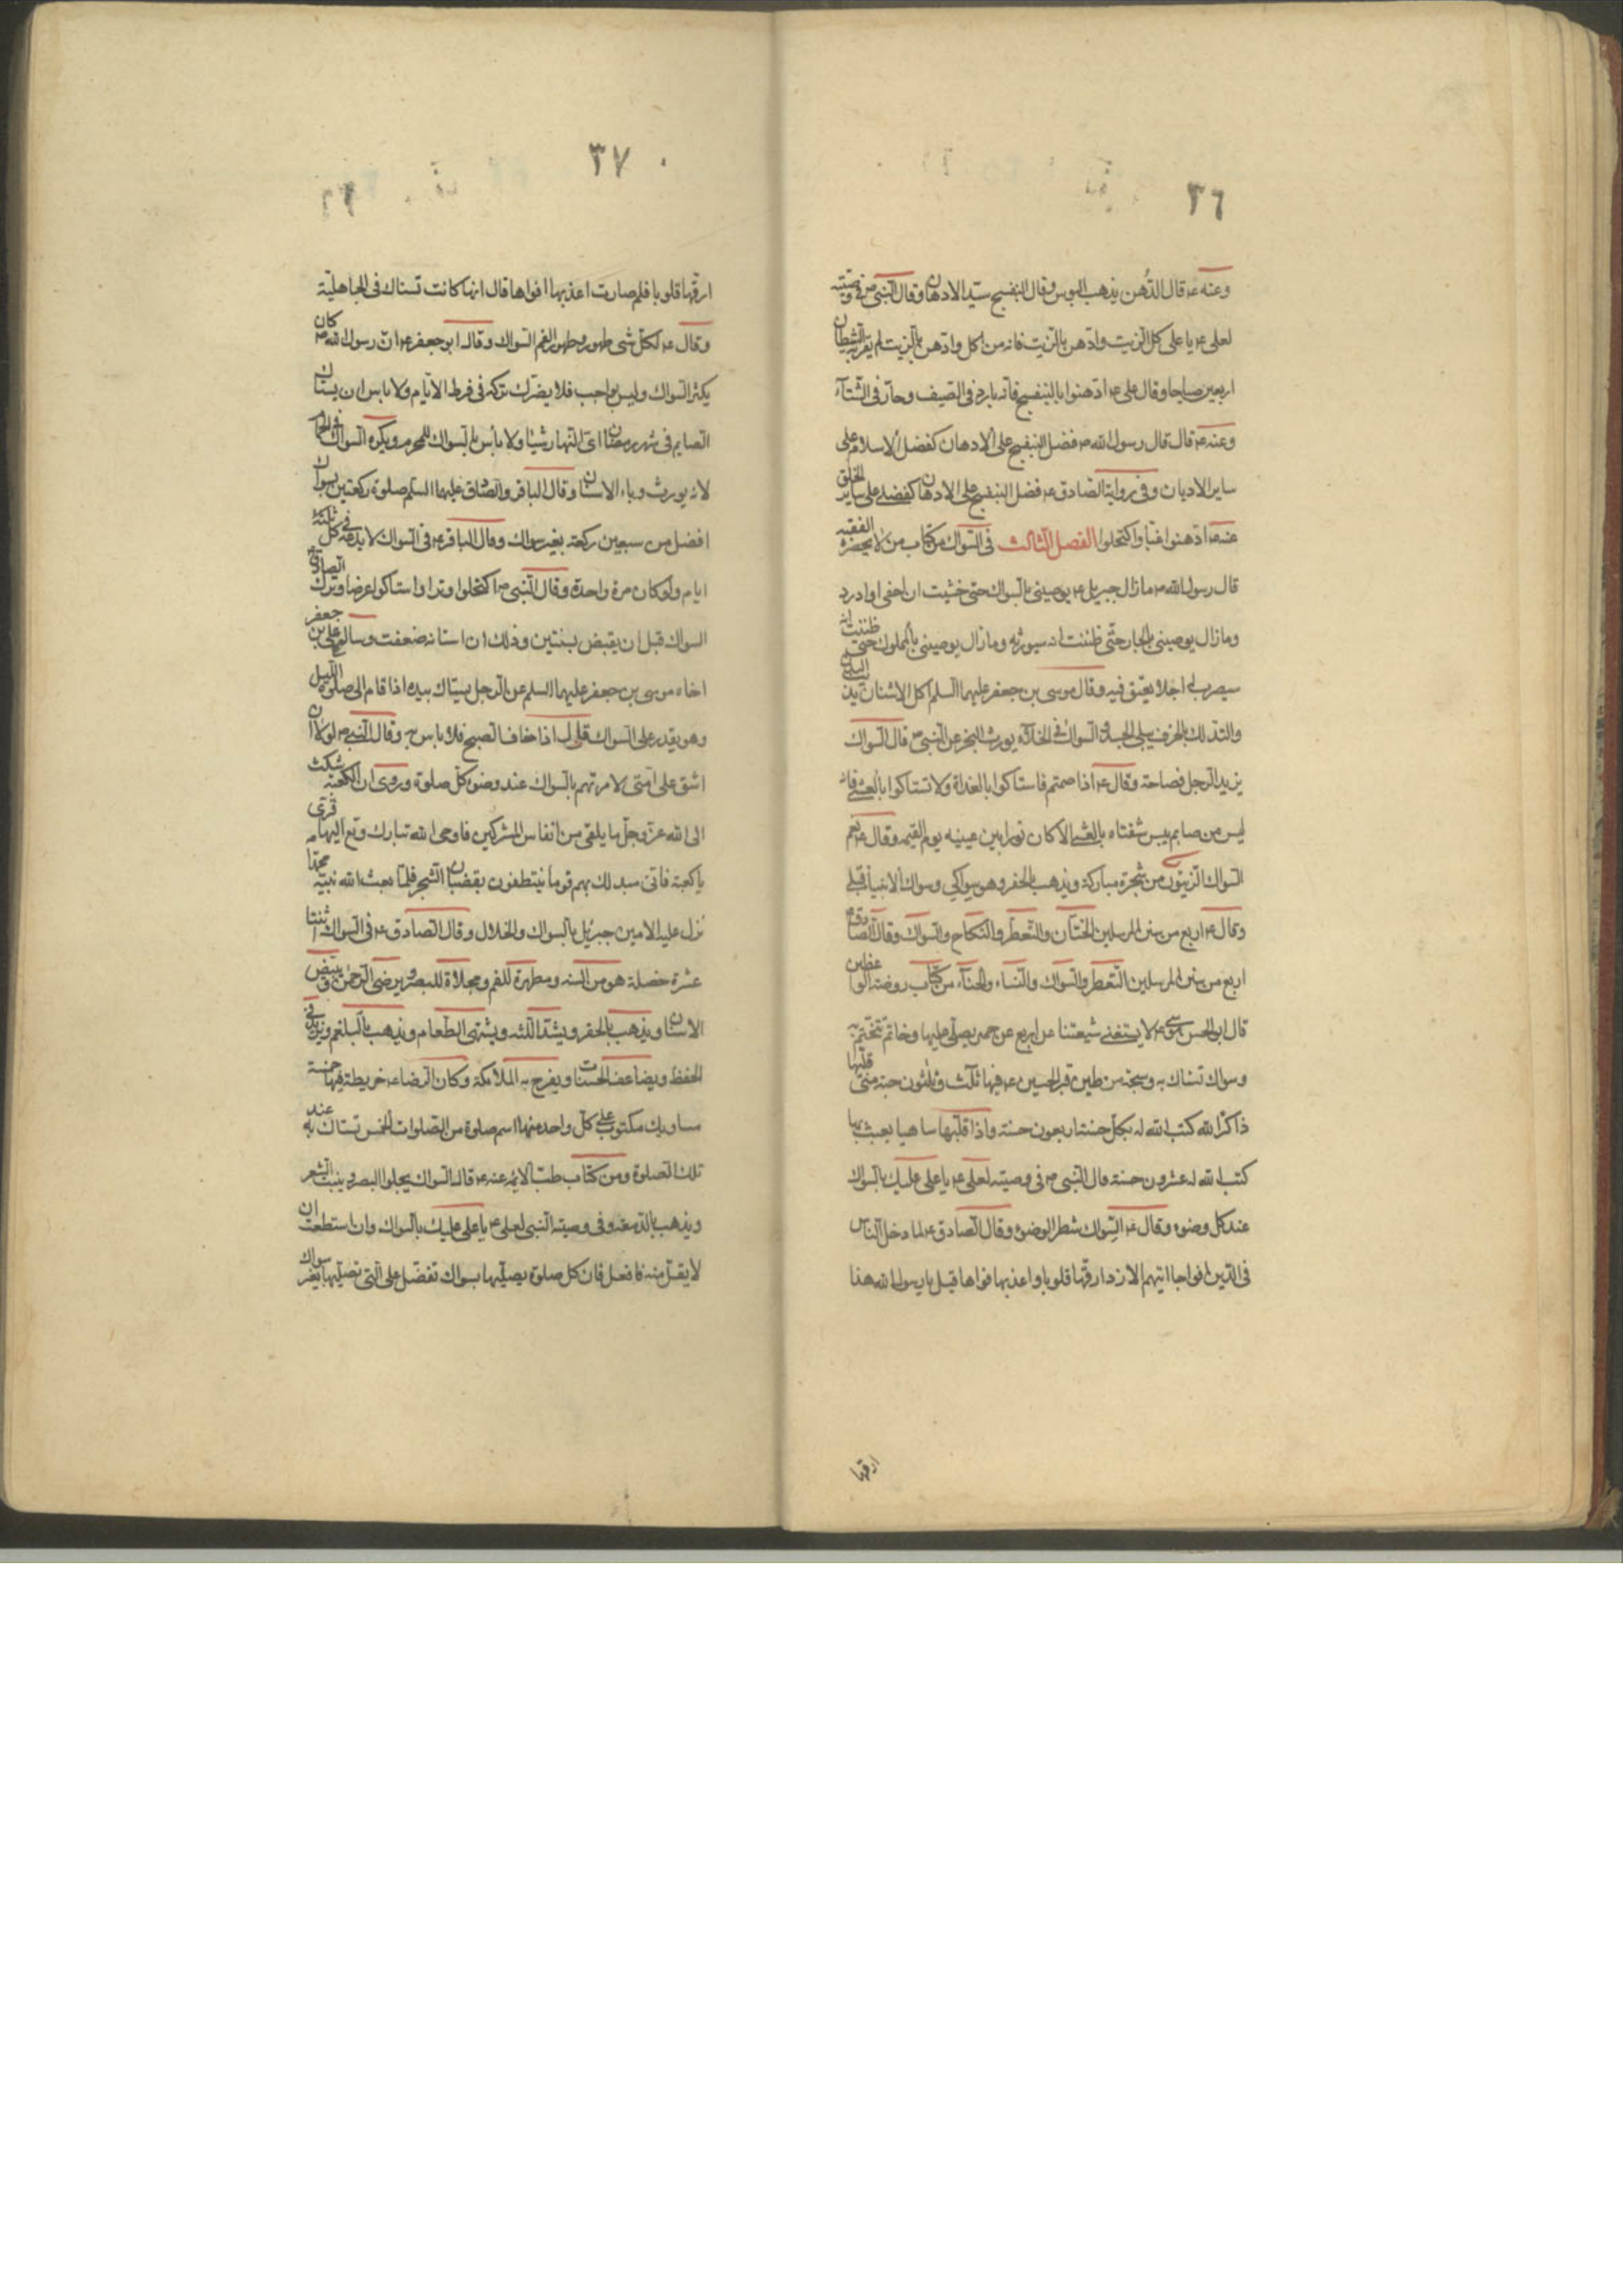 ٣٦
وعنه ع قال الدُهن يذهب البوس وقال البنفسج سيد الادهان وقال النبي ص في وصيته
لعلى ع يا على كل الزيت وادّهن بالزيت فانه من اكل وادّهن بالزيت لم يقربه الشيطان
اربعين صباحا وقال على ع ادّهنوا بالبنفسج فانّه بارد فى الصيف وحارّ فى الشتآء
وعنه ع قال قال رسول الله ص فضل البنفسج على الادهان كفضل الاسلام على
ساير الاديان وفى رواية الصادق ع فضل البنفسج على الادهان كفضله على ساير الخلق
عنه ع ادّهنوا غبّا واكتحلوا الفصل الثالث فى السّواك من كتاب من لا يحضره الفقيه
قال رسول الله ص ما زال جبريل ع يوصينى بالسواك حتى خشيت ان احفى او ادرد
وما زال يوصينى بالجار حتّى ظننت انه سيورثه وما زال يوصينى بالمملوك حتى ظننت انه
سيضرب له اجلا يعتق فيه وقال موسى بن جعفر عليهما السلم اكل الاشنان يذيب البدن
والتدلك بالخزف يبلى الجسد والسواك فى الخلآء يورث البخر عن النبى ص قال السواك
يزيد الرجل فصاحة وقال ع اذا صمتم فاستاكوا بالغداة ولا تستاكوا بالعشى فانه
ليس من صايم ييبس شفتاه بالعشى الا كان نورا بين عينيه يوم القيمه وقال ع نعم
السواك الزيتون من شجرة مباركة ويذهب بالحفر وهو سواكى وسواك الانبيآء قبلى
وقال ع اربع من سنن المرسلين الختان والتعطر والنكاح والسواك وقال الصادق ع
اربع من سنن المرسلين التعطر والسواك والنساء والحنآء من كتاب روضة الواعظين
قال ابى الحسن موسى ع لا يستغنى شيعتنا عن اربع عن خمره يصلى عليها وخاتم يتختم به
وسواك تستاك به وسبحة من طين قبر الحسين ع فيها ثلث وثلثون حبة متى قلبها
ذاكرا لله كتب الله له بكل حبة اربعون حسنة واذا قلبها ساهيا يعبث بها
كتب الله له عشرون حسنة قال النبى ص فى وصيته لعلى ع يا على عليك بالسواك
عند كل وضوء وقال ع السّواك شطر الوضوء وقال الصادق ع لما دخل الناس
فى الدين افواجا اتيهم الازد ارقّها قلوبا واعذبها افواها قيل يا رسول الله هذا
ارقها
٣٧
ارقّها قلوبا فلم صارت اعذبها افواها قال انها كانت تستاك فى الجاهلية
وقال ع لكلّ شى طهور وطهور الفم السواك وقال ابو جعفر ع انّ رسول الله ص كان
يكثر السواك وليس بواجب فلا يضرّك تركه فى فرط الايام ولا باس ان يستاك
الصايم فى شهر رمضان اىّ النهار شيئا ولا بأس بالسواك للمحرم ويكره السواك فى الحمام
لانه يورث وباء الاسنان وقال الباقر والصادق عليهما السلم صلوة ركعتين بسواك
افضل من سبعين ركعة بغير سواك وقال الباقر ع فى السواك لا تدعه فى كل ثلثة
ايام ولو كان مرة واحدة وقال النبى ص اكتحلوا وترا واستاكوا عرضا وترك الصادق ع
السواك قبل ان يقبض بسنتين وذلك ان اسنانه ضعفت وسأل على بن جعفر
اخاه موسى بن جعفر عليهما السلم عن الرجل يستاك بيده اذا قام الى صلوة الليل
وهو يقدر على السواك قال اذا خاف الصبح فلا باس به وقال النبى ص لولا ان
اشق على امتى لامرتهم بالسواك عند وضوء كلّ صلوة وروى ان الكعبة شكت
الى الله عزّ وجلّ ما يلقى من انفاس المشركين فاوحى الله تبارك وتع اليها قرى
يا كعبة فانى مبدلك بهم قوما يتنظفون بقضبان الشجر فلمّا بعث الله نبيّه محمدا
نزل عليه الامين جبرئيل بالسواك والخلال وقال الصادق ع فى السواك اثنتا
عشرة خصلة هو من السنه ومطهرة للفم ومجلاة للبصر ويرضى الرحمن ويبيض
الاسنان ويذهب بالحفر ويشدّ اللثه ويشهى الطعام ويذهب بالبلغم ويزيد فى
الحفظ ويضاعف الحسنات ويفرح به الملائكة وكان للرضا ع خريطة فيها خمسة
مساويك مكتوب على كل واحد منها اسم صلوة من الصلوات الخمس تستاك به عند
تلك الصلوة ومن كتاب طب الائمه عنه ع قال السواك يجلوا البصر وينبت الشعر
ويذهب بالدمعه وفى وصية النبى لعلى ع يا على عليك بالسواك وان استطعت ان
لا يقلّ منه فافعل فان كل صلوة يصلّيها بسواك تفضل على التى تصلّيها بغير سواك